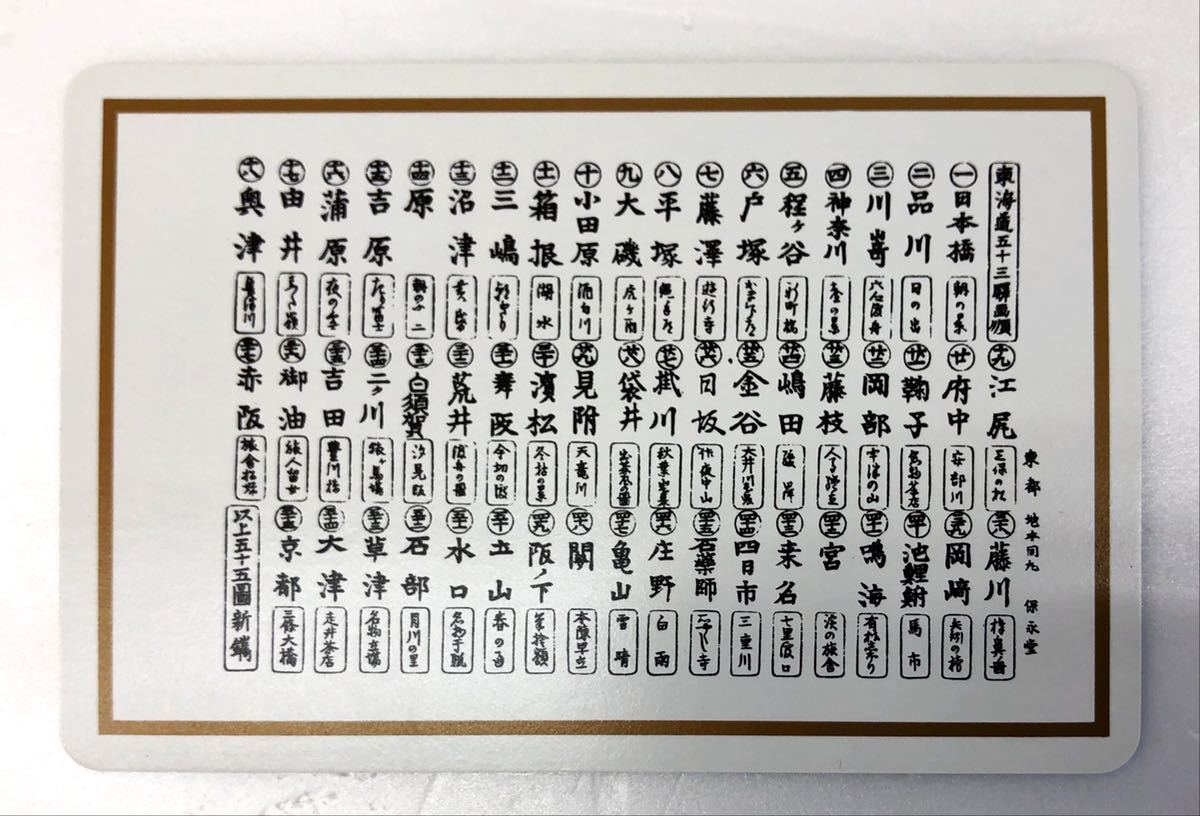 東海道五十三驛画
一 日本橋 朝の景
二 品川 日の出
三 川崎 六合渡舟
四 神奈川 台の景
五 程ヶ谷 新町橋
六 戸塚
七 藤澤 遊行寺
八 平塚 縄手道
九 大磯 虎ヶ雨
十 小田原 酒匂川
十一 箱根 湖水
十二 三嶋 朝きり
十三 沼津 黄昏
十四 原 朝のふ二
十五 吉原 左り富士
十六 蒲原 夜の雪
十七 由井
十八 奥津 興津川
十九 江尻 三保の松
廿 府中 安部川
廿一 鞠子 名物茶店
廿二 岡部 宇津の山
廿三 藤枝 人馬継立
廿四 嶋田 駿岸
廿五 金谷 大井川遠岸
廿六 日坂 佐夜中山
廿七 掛川 秋葉山遠望
廿八 袋井 出茶屋の圖
廿九 見附 天竜川
三十 濱松 冬枯の景
三十一 舞阪 今切の渡
三十二 荒井 渡舟の圖
三十三 白須賀 汐見阪
三十四 二タ川 猿ヶ馬場
三十五 吉田 豊川橋
三十六 御油 旅人留女
三十七 赤阪 旅舎招婦
東都 地本同九 保永堂
三十八 藤川 棒鼻圖
三十九 岡崎 矢矧の橋
四十 池鯉鮒 馬市
四十一 鳴海 有松
四十二 宮 濱の旅舎
四十三 桒名 七里渡口
四十四 四日市 三重川
四十五 石薬師 寺
四十六 庄野 白雨
四十七 亀山 雪晴
四十八 関 本陣早立
四十九 阪ノ下 筆捨嶺
五十 土山 春の雨
五十一 水口 名物干瓢
五十二 石部 目川の里
五十三 草津 名物立場
五十四 大津 走井茶店
五十五 京都 三條大橋
以上五十五圖新鐫